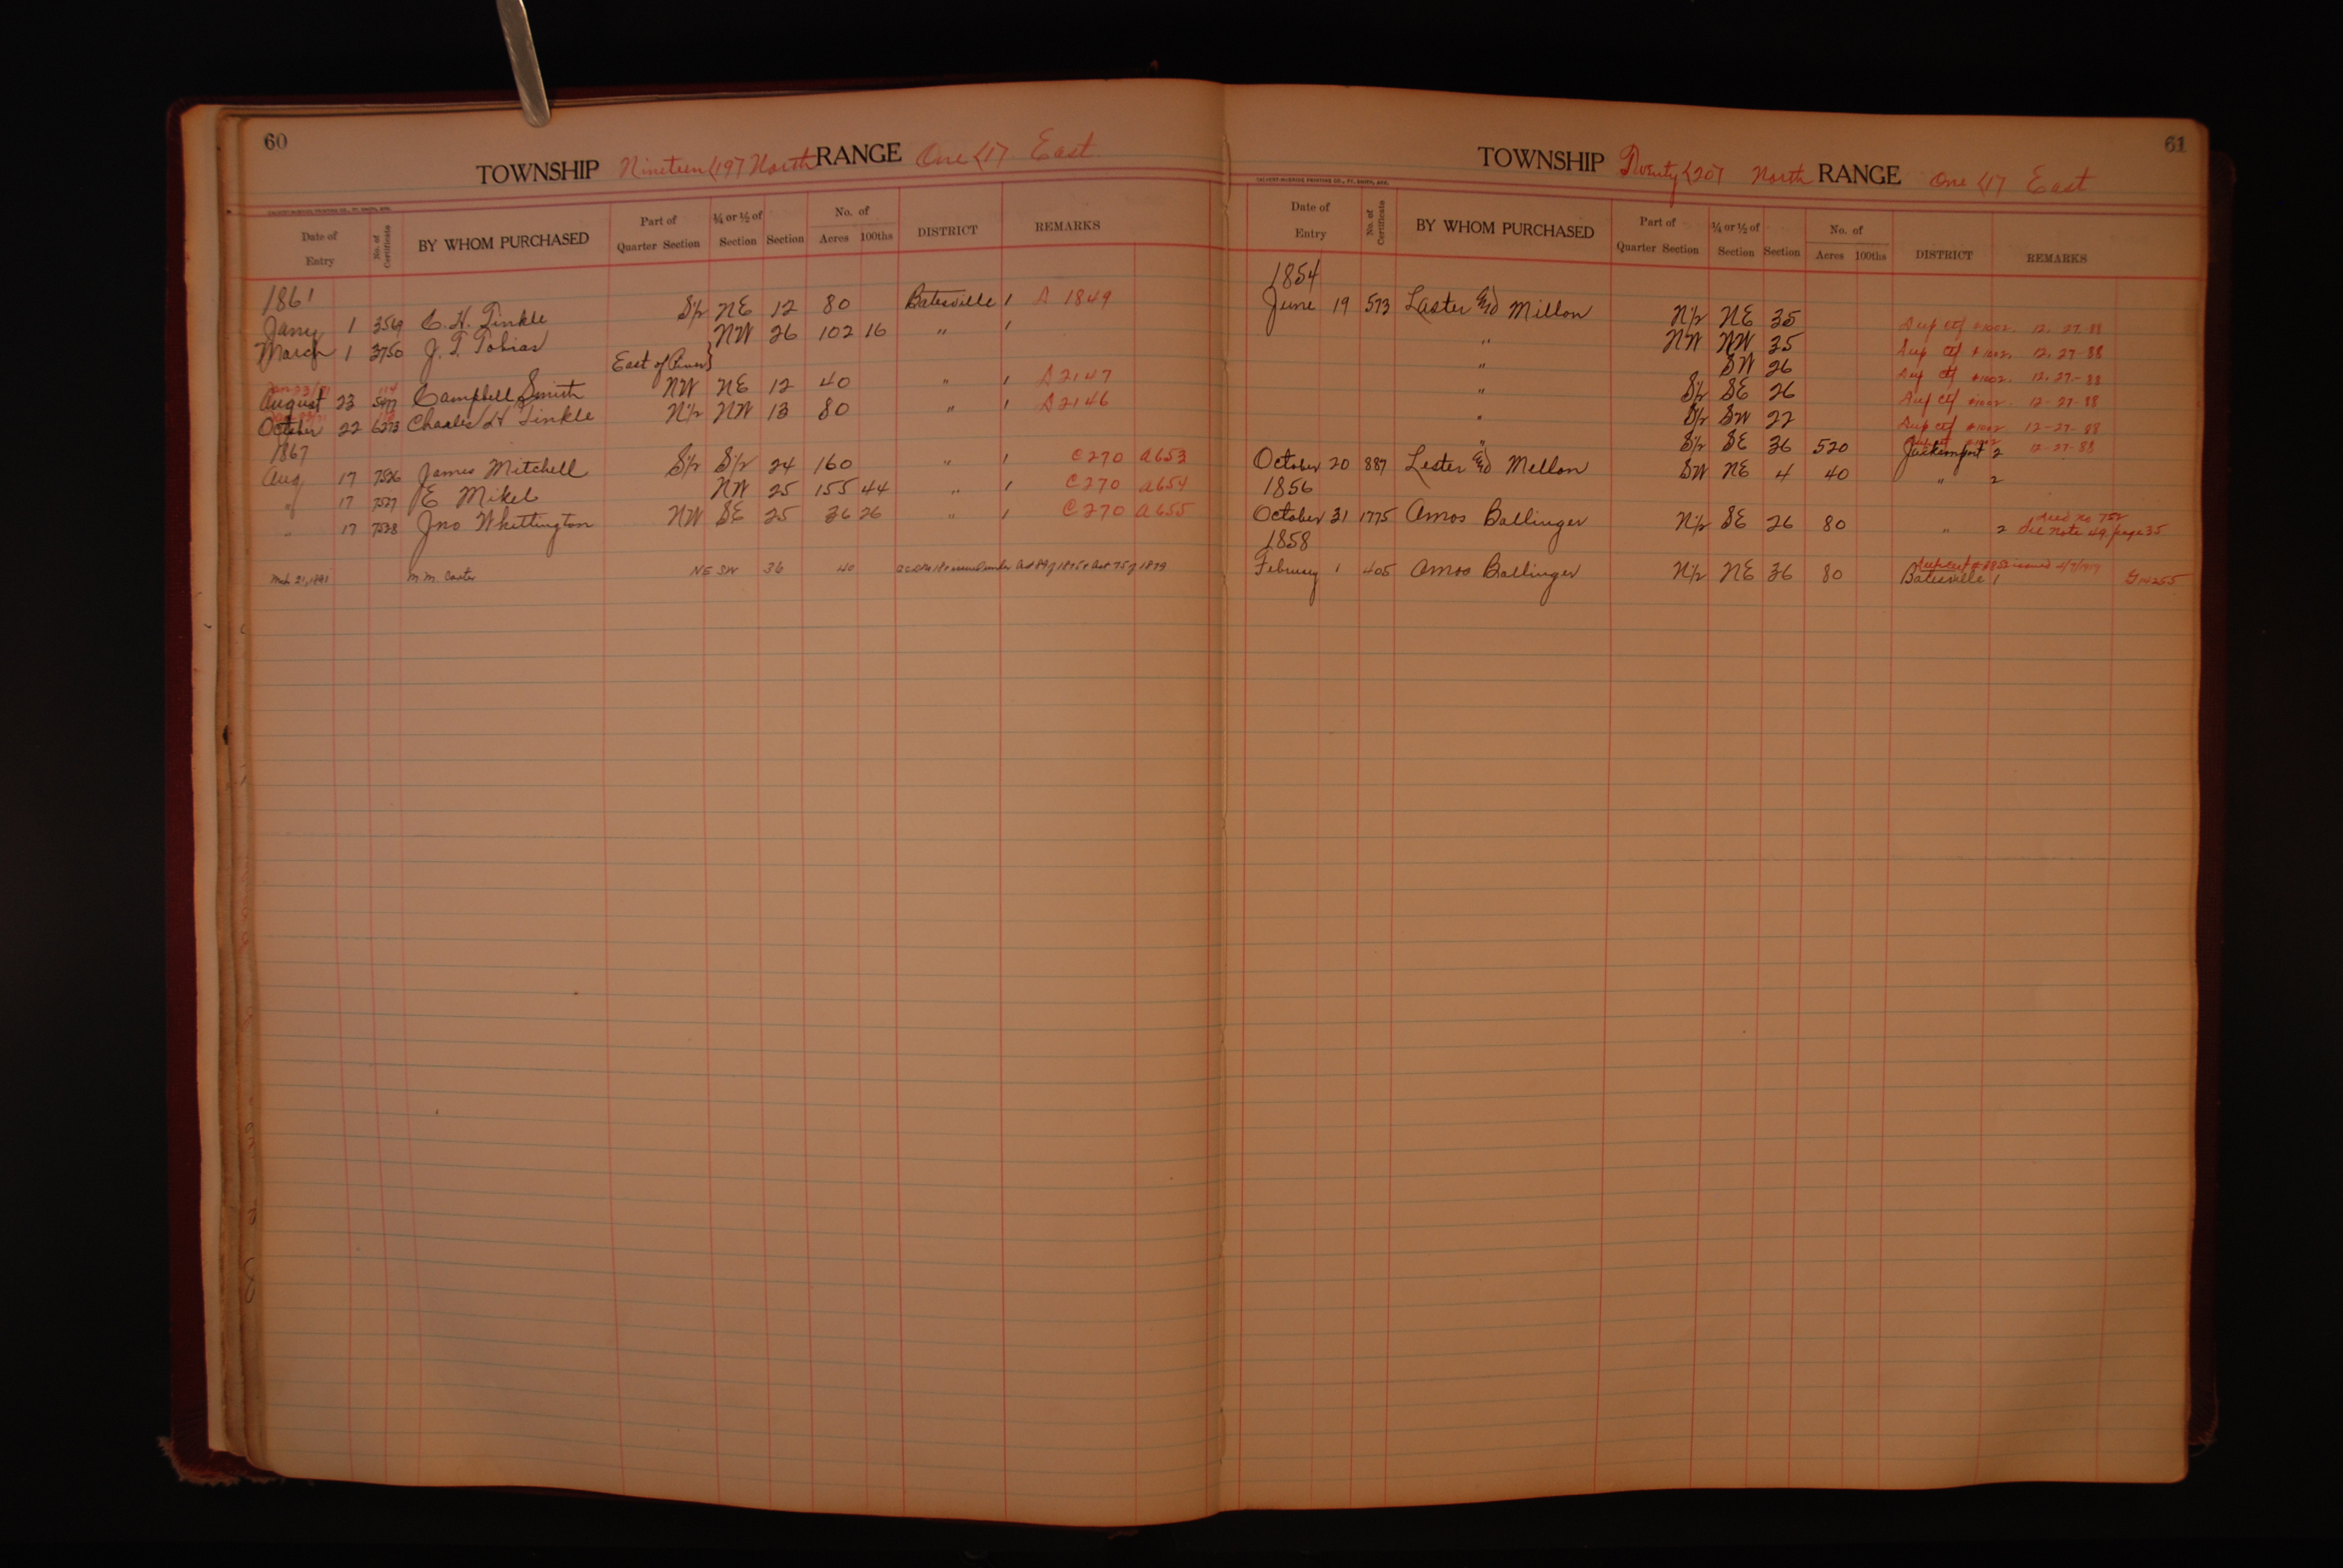 60
TOWNSHIP Nineteen (19) North RANGE One (1) East
Date of Entry No. of Certificate BY WHOM PURCHASED Part of Quarter Section ¼ or ½ of Section Section No. of Acres 100ths DISTRICT REMARKS
1861
Jany 1 3569 C. H. Tinkle S½ NE 12 80 Batesville 1 A 1849
March 1 3750 J. T. Tobias NW 26 102 16 " 1
East of River}
August 23 5477 Campbell Smith NW NE 12 40 " 1 A2147
October 22 6273 Charles H Tinkle N½ NW 13 80 " 1 A2146
1867
Aug 17 7526 James Mitchell S½ S½ 24 160 " 1 C270 A653
" 17 7527 E Mikel NW 25 155 44 " 1 C270 A654
" 17 7528 Jno Whittington NW SE 25 36 26 " 1 C270 A655
Mch 21, 1891 M. M. Carter NE SW 36 40 Act 75 of 1879
61
TOWNSHIP Twenty (20) North RANGE One (1) East
CALVERT-MCBRIDE PRINTING CO., FT. SMITH, ARK.
Date of Entry No. of Certificate BY WHOM PURCHASED Part of Quarter Section ¼ or ½ of Section Section No. of Acres 100ths DISTRICT REMARKS
1854
June 19 573 Laster End Millon N½ NE 35 Dup ctf #1002. 12-27-88
" NW NW 35 Dup ctf #1002. 12-27-88
" SW 26 Dup ctf #1002. 12-27-88
" S½ SE 26 Dup ctf #1002. 12-27-88
" S½ SW 22 Dup ctf #1002 12-27-88
" S½ SE 36 520 Jacksonport 2 12-27-88
October 20 887 Lester End Mellon SW NE 4 40 " 2
1856
October 31 1775 Amos Ballinger N½ SE 26 80 " 2 Deed no 752 See Note 49, page 35
1858
February 1 405 Amos Ballinger N½ NE 36 80 Batesville 1 G14255